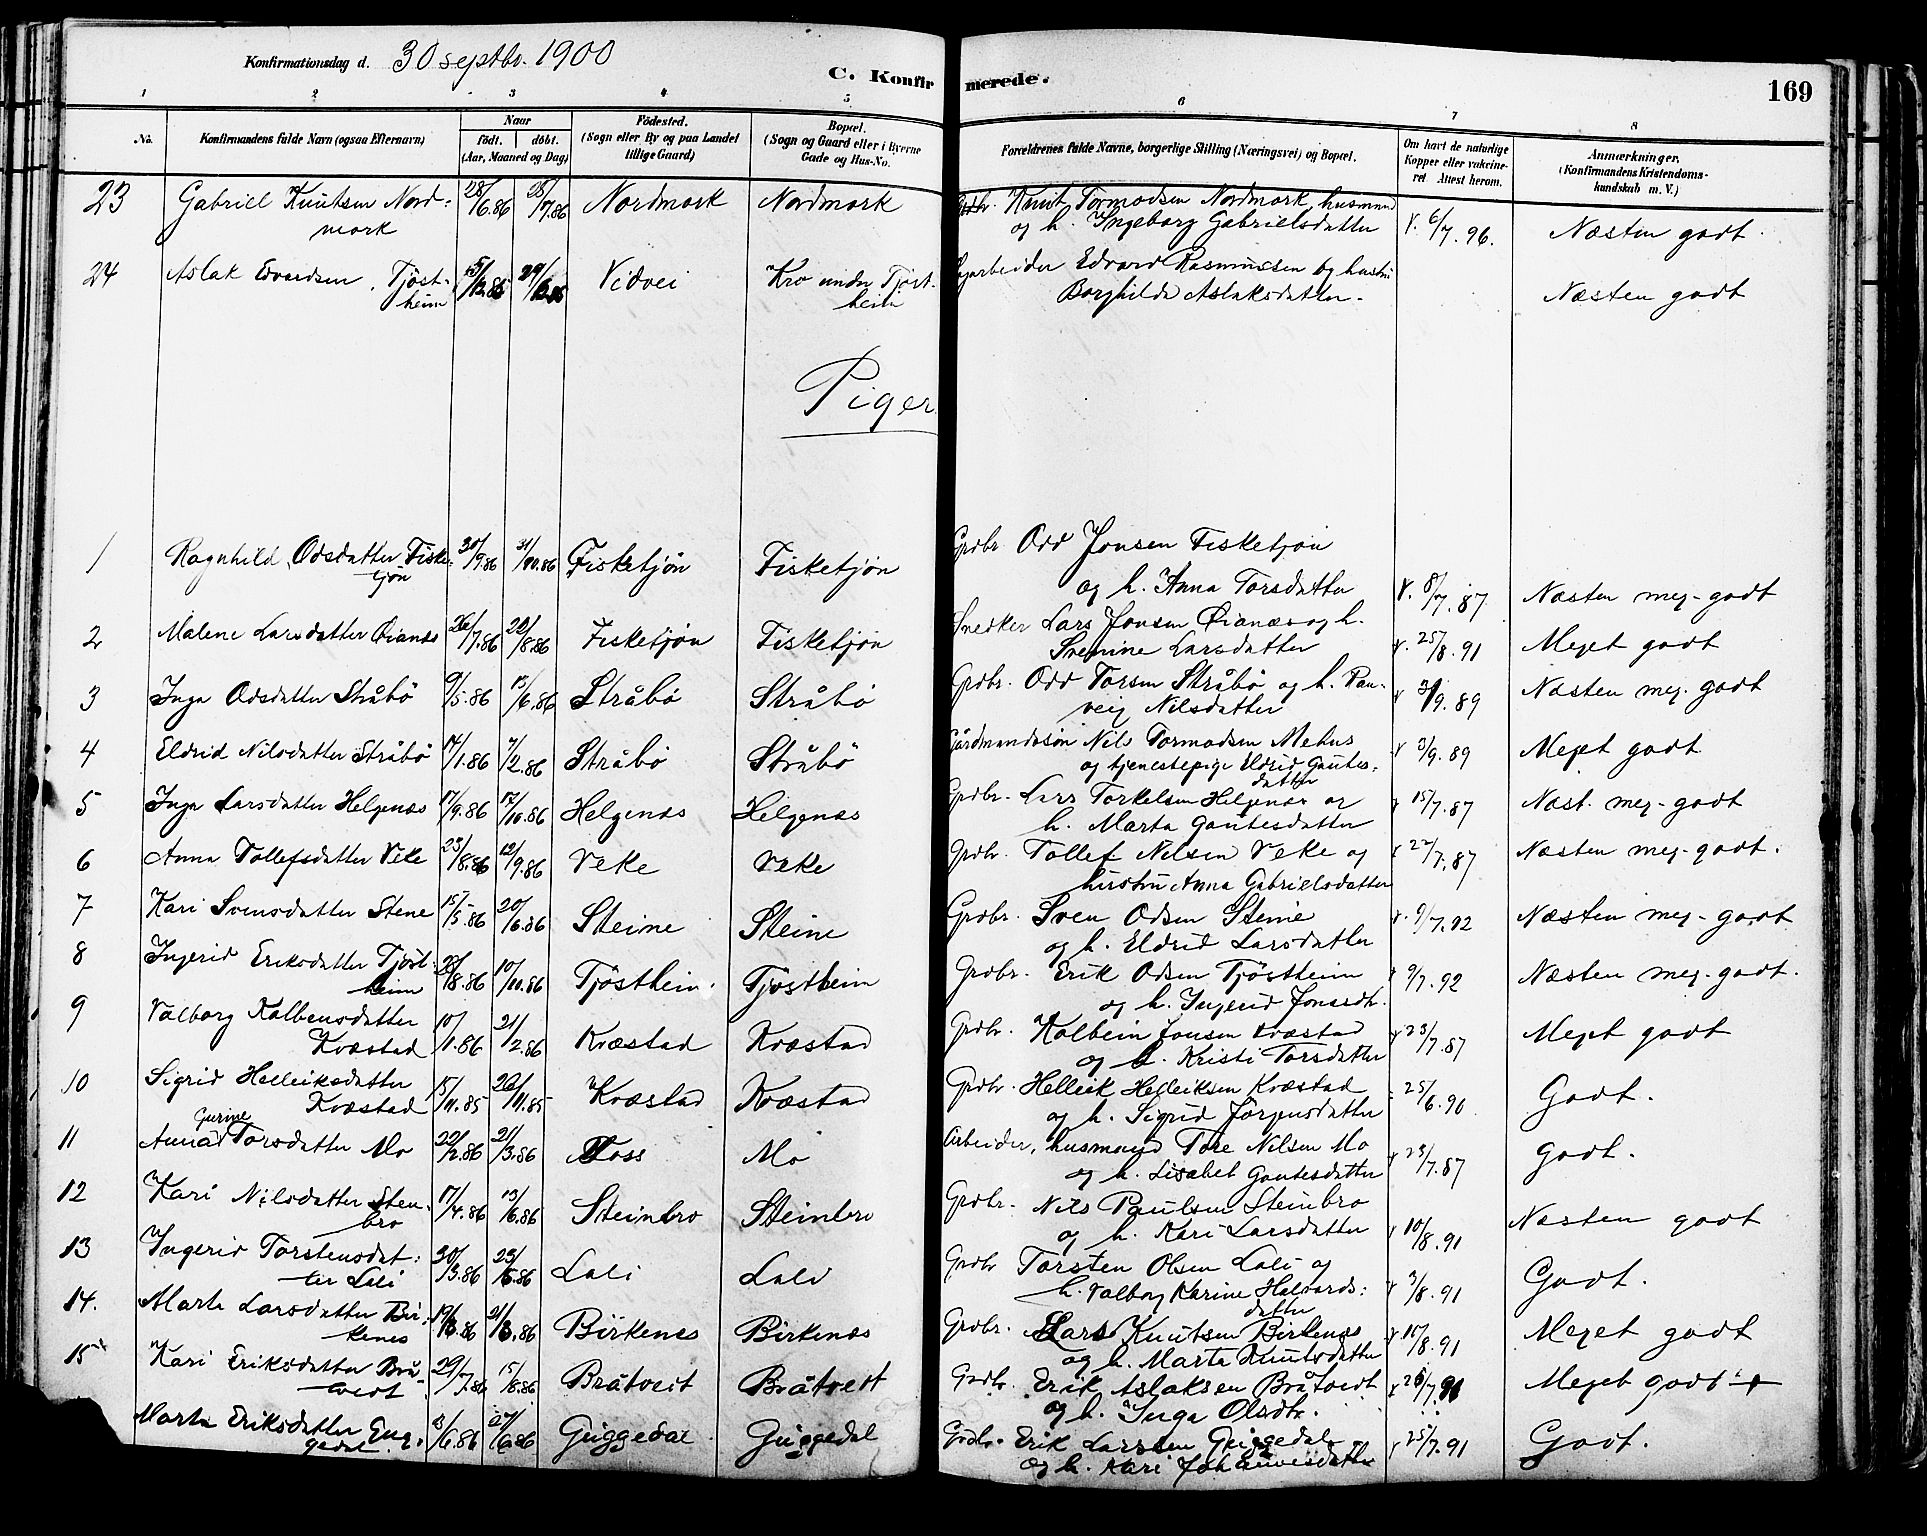 Konfirmationsdag d. 30 septbr. 1900
C. Konfirmerede.
169
1 2 3 4 5 6 7 8
No. Konfirmandens fulde Navn (ogsaa Efternavn) Naar født. døbt. (Aar, Maaned og Dag) Fødested. (Sogn eller By og paa Landet tillige Gaard) Bopæl. (Sogn og Gaard eller i Byerne Gade og Hus-No. Forældrenes fulde Navne, borgerlige Stilling (Næringsvei) og Bopæl. Om havt de naturlige Kopper eller vakcineret Attest herom. Anmærkninger. (Konfirmandens Kristendomskundskab m. V.)
23 Gabriel Knutsen Nord- 28/6.86 25/7.86 Nordmork Nordmork Grdbr. Knut Tormodsen Nordmork, husmand
mork og h. Ingeborg Gabrielsdatter V. 6/7.96. Næsten godt.
24 Aslak Edvardsen Tjøst- Vidvei Kro under Tjøst- Edvard Rasmussen og hustru
heim heim Borghilda Aslaksdatter. Næsten godt
Piger
1 Ragnhild Odsdatter Fiske- 30/9.86 31/10.86 Fisketjøn Fisketjøn Grdbr Odd Jonsen Fisketjøn
tjøn og h. Anna Torsdatter V. 8/7.87 Næsten meg. godt
2 Malene Larsdatter Øianæs 26/7.86 22/8.86 Fisketjøn Fisketjøn Snedker Lars Jonsen Øianæs og h.
Larsdatter v. 25/8.91 Meget godt
3 Inga Odsdatter Stråbø 9/5.86 /6.86 Stråbø Stråbø Grdbr. Odd Torsen Stråbø og h. Ran-
veig Nilsdatter v 3/9.89 Næsten meg. godt
4 Eldrid Nilsdatter Stråbø 14/1.86 7/2.86 Stråbø Stråbø Gårdmandssøn Nils Tormodsen Mehus
og tjenestepige Eldrid Gautes- v 3/9.89 Meget godt
datter
5 Inga Larsdatter Helgenæs 17/9.86 17/10.86 Helgenæs Helgenæs Grdbr. Lars Torkelsen Helgenæs og
h. Marta Gautesdatter v 15/7.87 Næst. meg. godt
6 Anna Tollefsdatter Veke 23/8.86 12/9.86 Veke Veke Grdbr. Tollef Nilsen Veke og
hustru Anna Gabrielsdatter v 22/7.87 Næsten meg. godt.
7 Kari Svensdatter Stene 15/5.86 20/6.86 Steine Steine Grdbr. Sven Odsen Steine
og h. Eldrid Larsdatter v. 9/7.92 Næsten meg. godt
8 Ingerid Eriksdatter Tjøst- /8.86 10/10.86 Tjøstheim. Tjøstheim Grdbr. Erik Odsen Tjøstheim
heim og h. Ingerid Jonsdtr. 9/7.92 Næsten meg. godt.
9 Valborg Kolbensdatter 10/1.86 21/2.86 Kvæstad Kvæstad Grdbr. Kolbein Jonsen Kvæstad
Kvæstad og h. Kristi Torsdatter v 23/7.87 Meget godt
10 Sigrid Helleiksdatter 15/11.85 26/11.85 Kvæstad Kvæstad Grdbr. Helleik Helleiksen Kvæstad
Kvæstad og h. Sigrid Jørgensdatter 25/6.90 Godt.
Gurine
11 Anna Torsdatter Mo 22/2.86 21/3.86 Foss Mo Arbeider, husmand Tore Nilsen Mo
og h. Lisabet Gautesdatter v 23/7.87 Godt.
12 Kari Nilsdatter Sten- 17/4.86 13/6.86 Steinbro Steinbro Grdbr. Nils Paulsen Steinbro
bro og h. Kari Larsdatter v 10/8.91 Næsten godt
13 Ingerid Torstensdat- 20/3.86 23/5.86 Lali Lali Grdbr Torsten Olsen Lali og
ter Lali h. Valborg Karine Halvards- v 3/8.91 Godt.
datter
14. Marta Larsdatter Bir- 19/3.86 21/3.86 Birkenes Birkenæs Grdbr. Lars Knutsen Birkenæs
kenes og h. Marta Knutsdatter v 10/8.91 Meget godt
15 Kari Eriksdatter Brå- 29/7.86 15/8.86 Bråtveit Bråtveit Grdbr. Erik Aslaksen Bråtveit
tveit og h. Inga Olsdtr. Meget godt +
Marta Eriksdatter Gug- /6.86 27/6.86 Guggedal Guggedal Grdbr. Erik Larsen Guggedal
gedal og h. Kari Johannesdatter v 25/7.91 Godt.